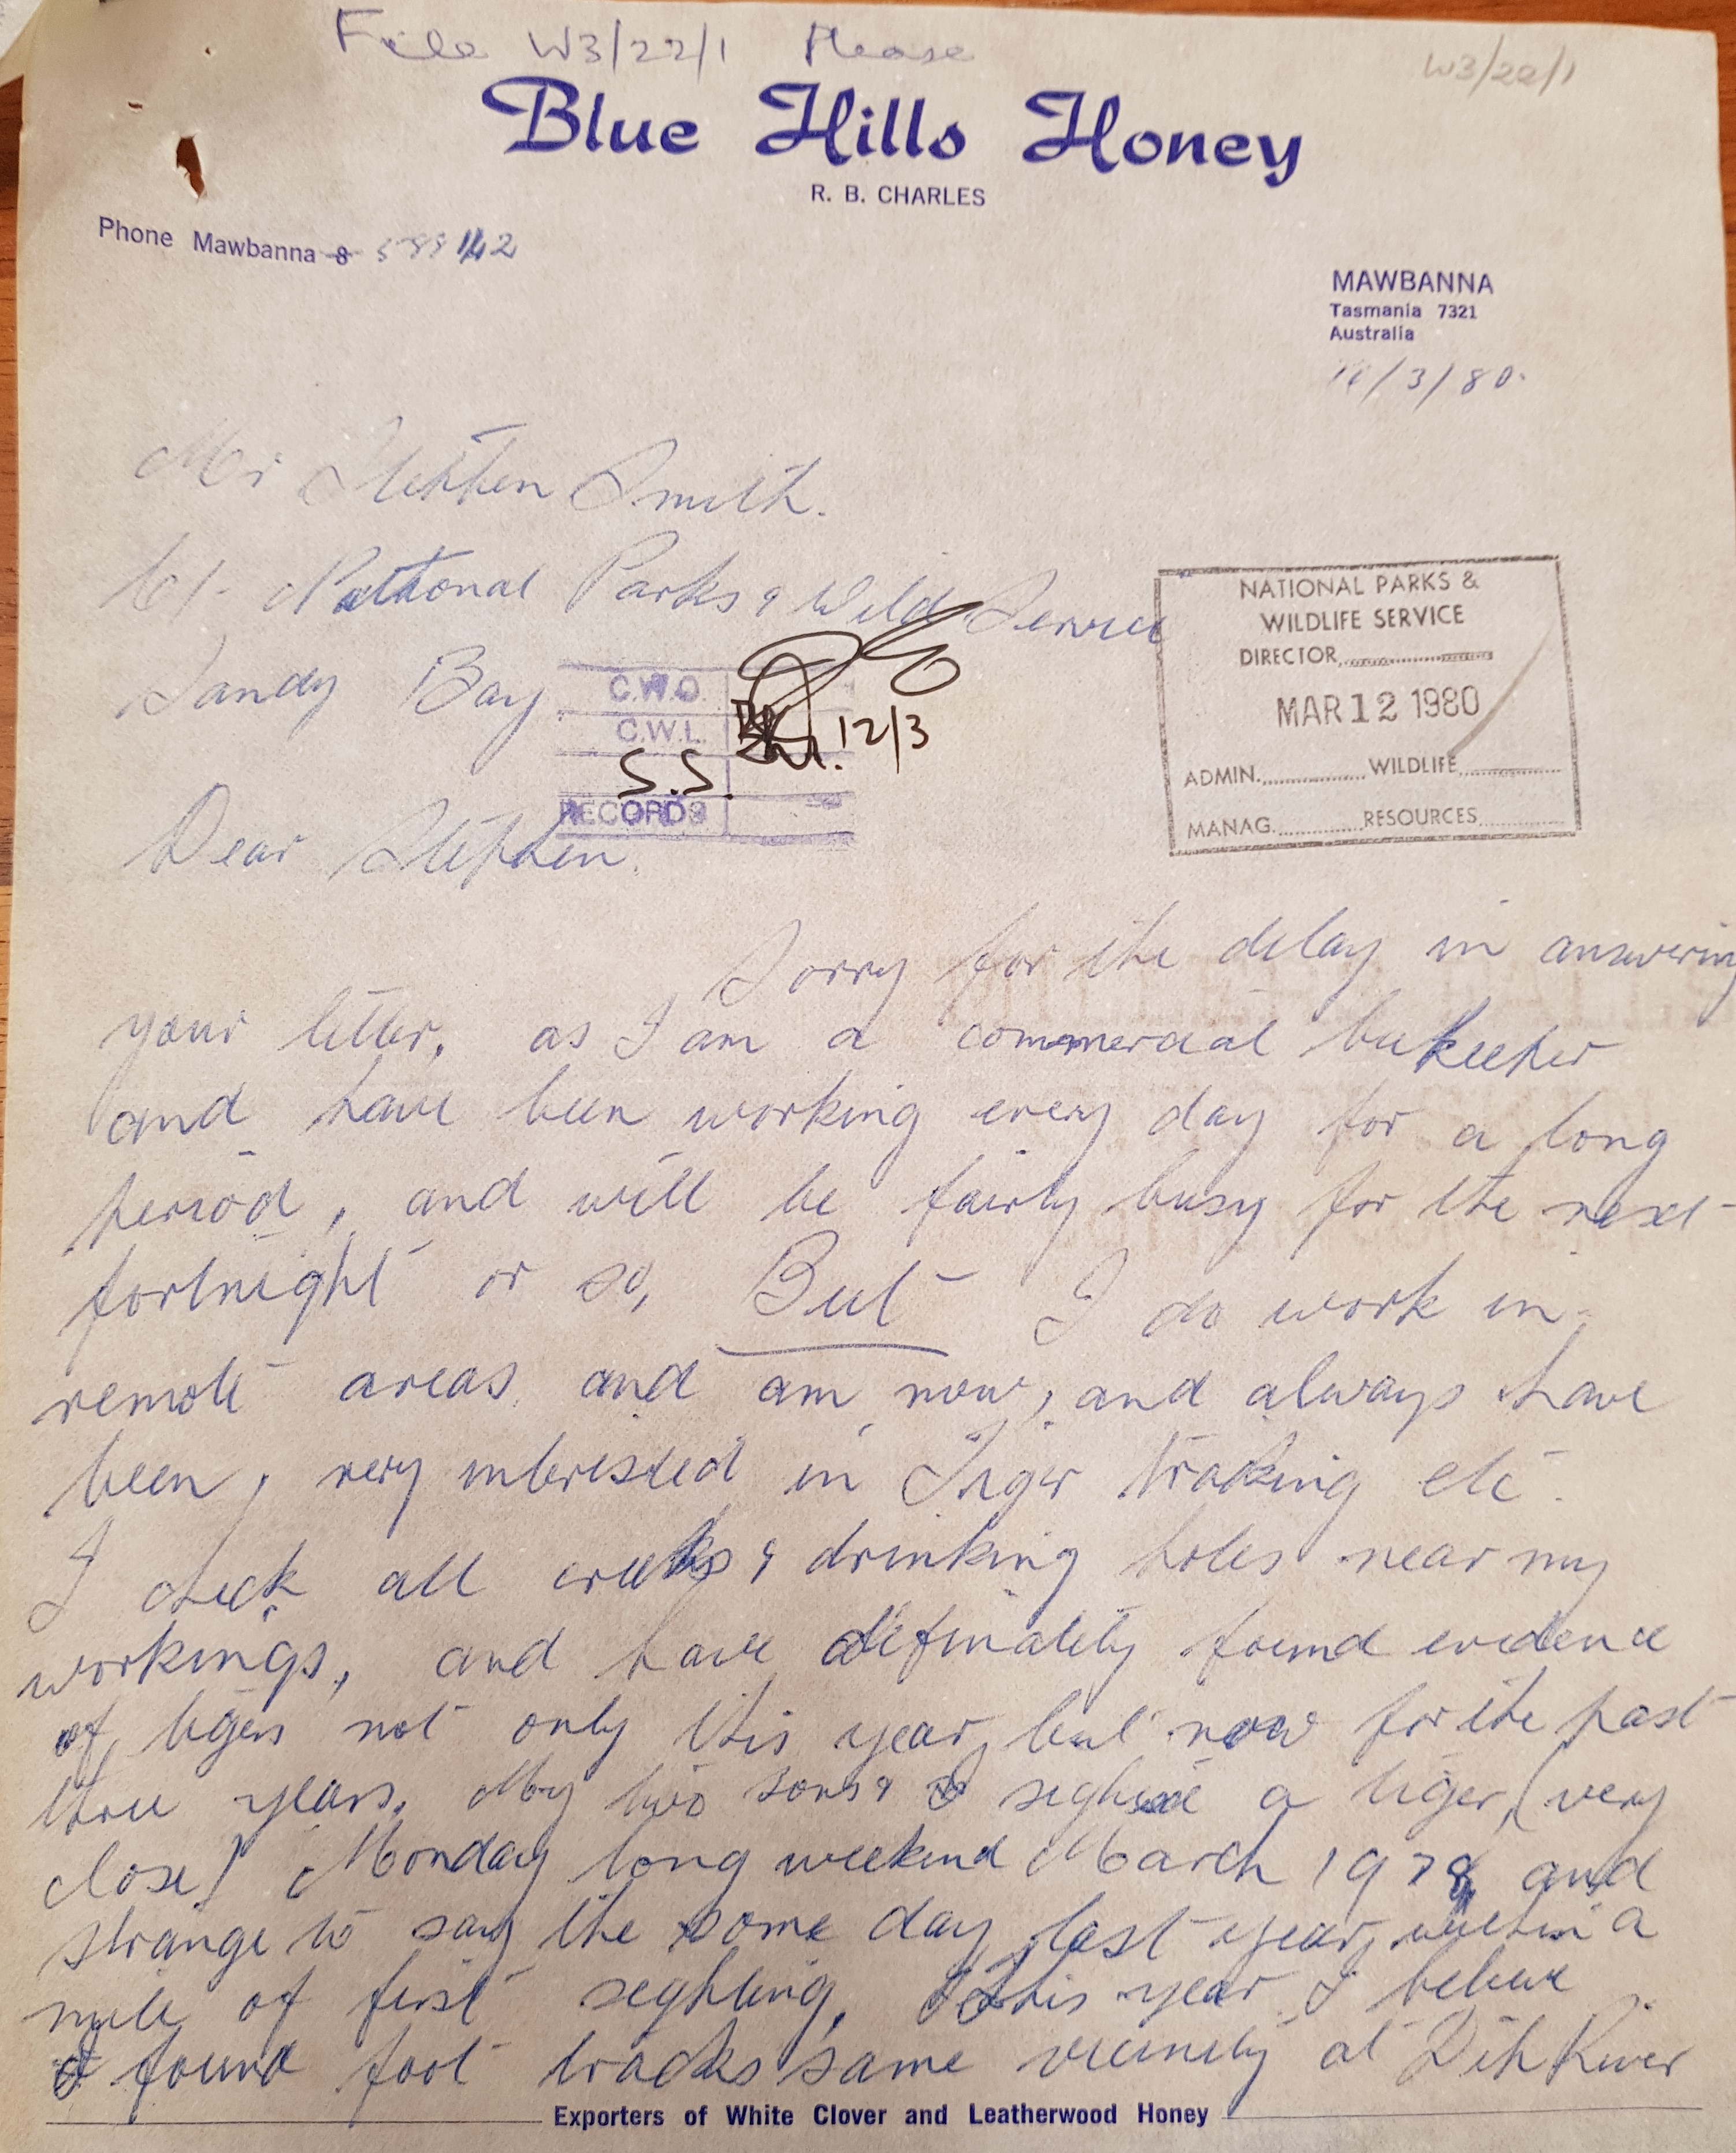 File W3/22/1 Please
W3/22/1
Blue Hills Honey
R. B. CHARLES
Phone Mawbanna 8 142
MAWBANNA
Tasmania 7321
Australia
/3/80.
Mr Stephen Smith.
C/- National Parks & Wild Service
Sandy Bay.
NATIONAL PARKS &
WILDLIFE SERVICE
DIRECTOR
MAR 12 1980
ADMIN. WILDLIFE
MANAG. RESOURCES
C.W.O.
C.W.L. 12/3
S.S.
RECORDS
Dear Stephen.
Sorry for the delay in answering
your letter, as I am a commercial beekeeper
and have been working every day for a long
period, and will be fairly busy for the next
fortnight or so, But I do work in
remote areas and am now, and always have
been, very interested in Tiger tracking etc.
I check all creeks & drinking holes near my
workings, and have definately found evidence
of tigers not only this year, but now for the past
three years. My two sons & I seghted a tiger, (very
close) Monday long weekend March 1978 and
strange to say the same day last year, within a
mile of first seghting. This year I believe
I found foot tracks same vicinity at Dip River
Exporters of White Clover and Leatherwood Honey